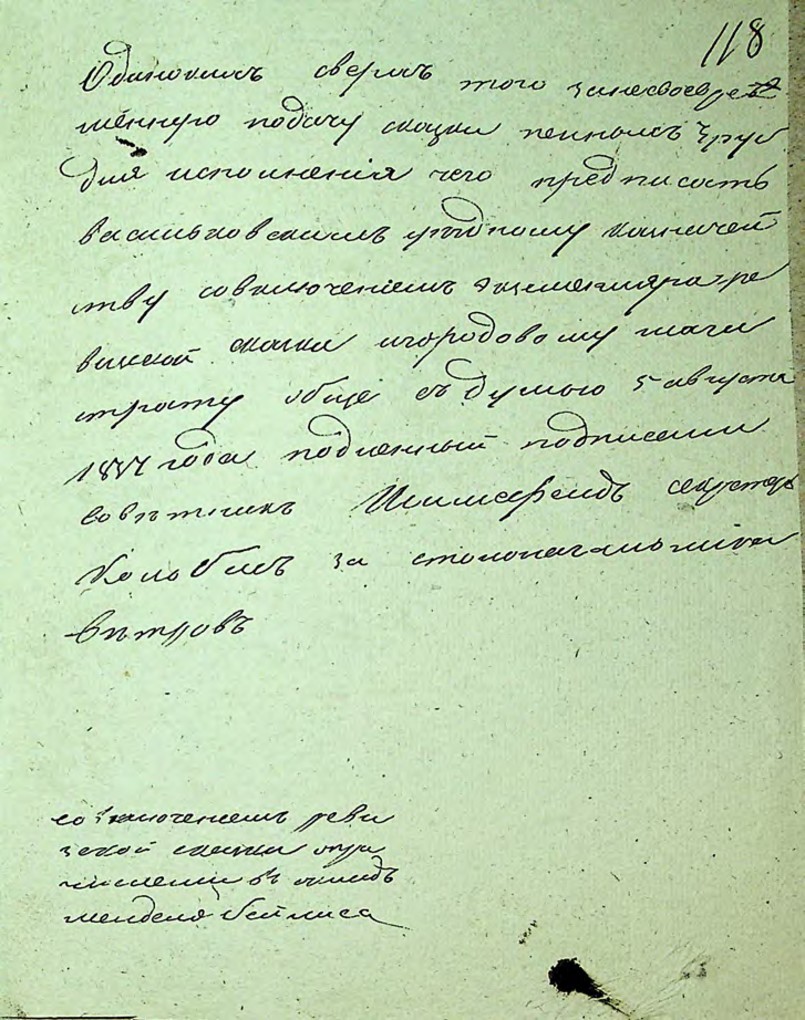 118
Одинокимъ сверхъ того занесвоевре
менную подачу сказки пеннымъ 3 руб
для исполнения чего предписать
васильковскимъ уездному казначей
ству совключениемъ экземпляра ре
визской сказки игородовому маги
страту обще съ думою 5 августа
года подленный подписали
Советникъ секретарь
за столоначальника
Ветровъ
со включениемъ реви
зской сказки опри
числении въ окладъ
менделя бейлиса